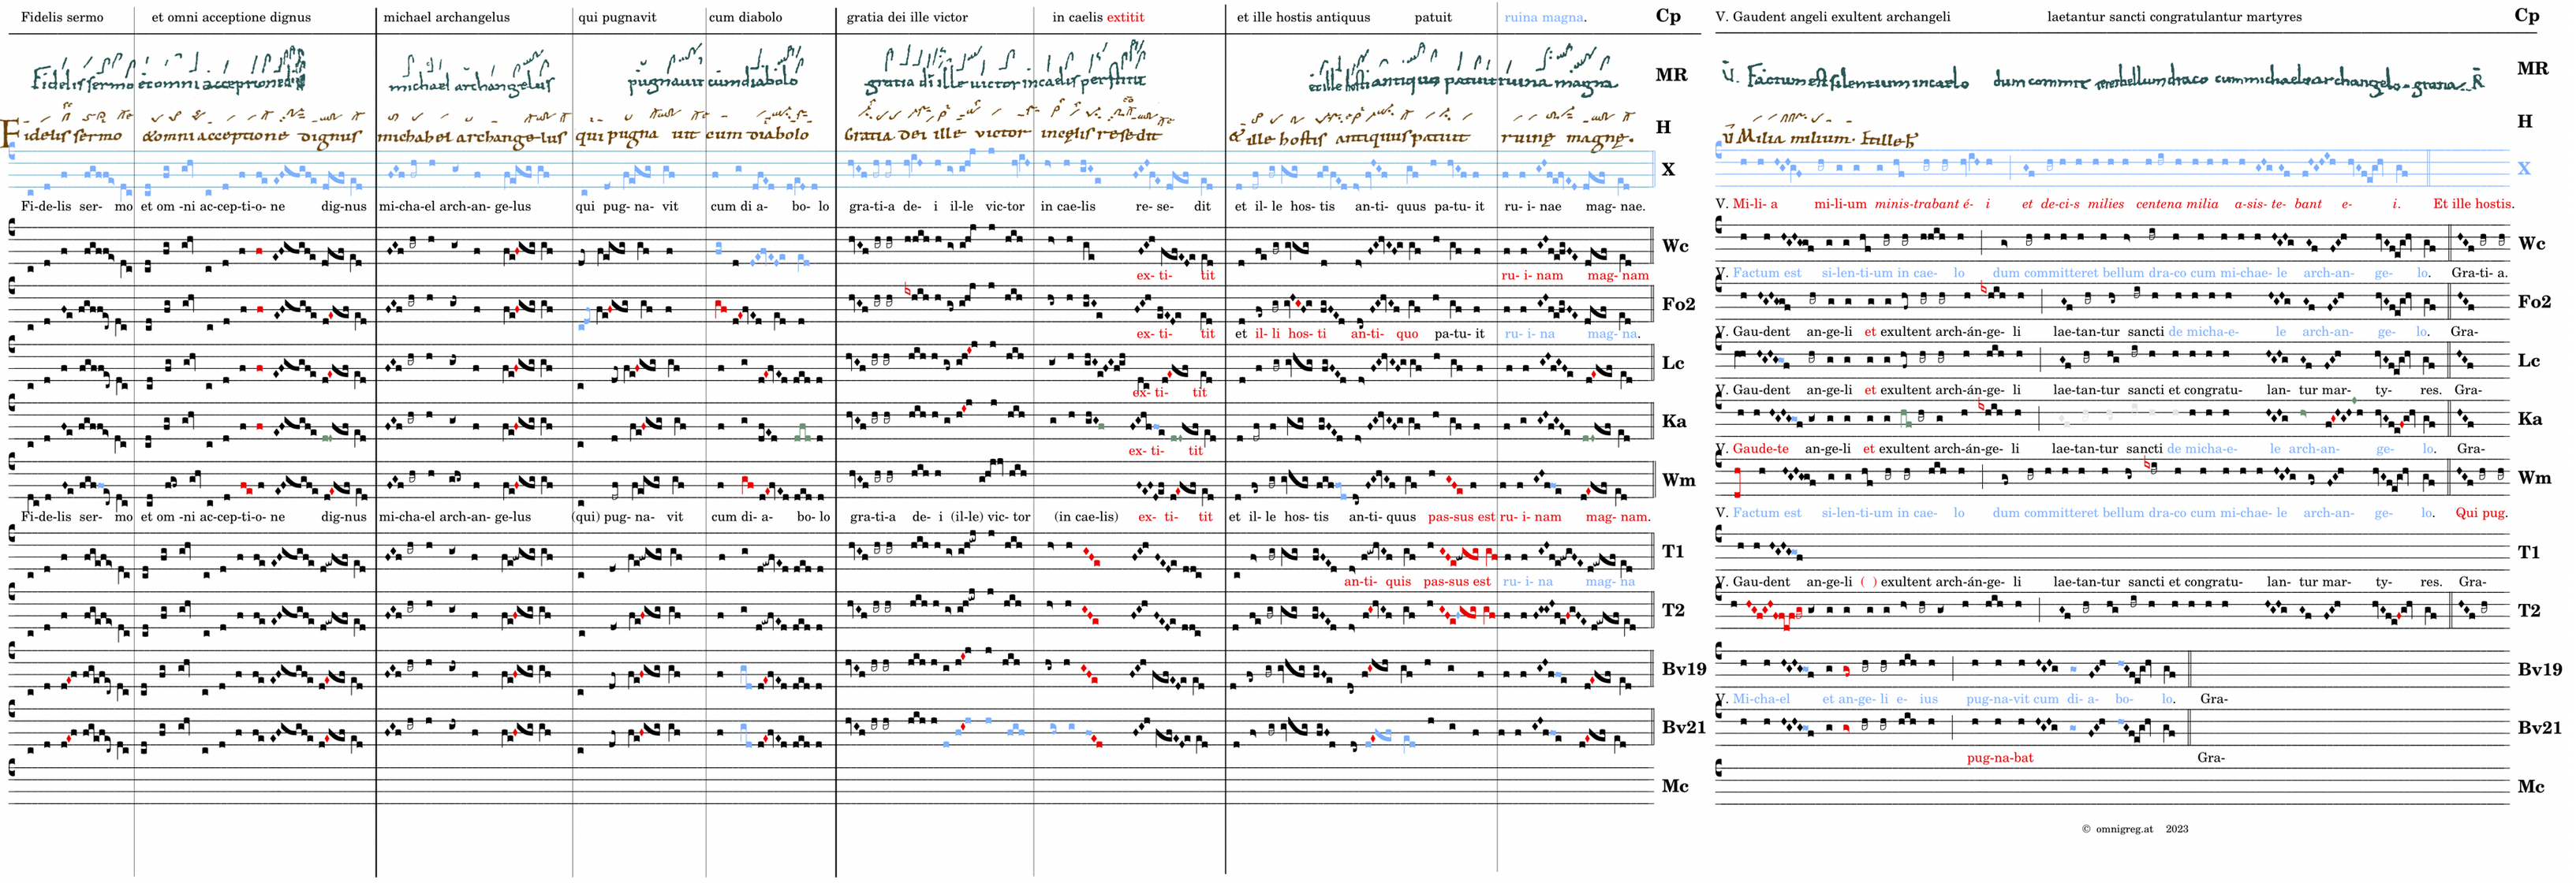 Fidelis sermo et omni acceptione dignus michael archangelus qui pugnavit cum diabolo gratia dei ille victor in caelis extitit et ille hostis antiquus patuit ruina magna. Cp V. Gaudent angeli exultent archangeli laetantur sancti congratulantur martyres Cp
Fidelis sermo et omni acceptione michael archangelus pugnauit cum diabolo gratia di ille uictor in caelis perstitit et ille hosti antiquus patuit ruina magna MR V. Factum est silentium in caelo dum committ bellum draco cum michaele archangelo gratia R MR
Fidelis sermo & omni acceptione dignus michahel archangelus qui pugnauit cum diabolo Gratia dei ille victor in celis resedit & ille hostis antiquus patuit ruine magne. H V Milia milium. Et ille h H
X X
Fi-de-lis ser- mo et om -ni ac-cep-ti-o- ne dig-nus mi-cha-el arch-an- ge-lus qui pug- na- vit cum di a- bo- lo gra-ti-a de- i il-le vic-tor in cae-lis re- se- dit et il- le hos- tis an-ti- quus pa-tu- it ru- i- nae mag- nae. V. Mi-li- a mi-li-um minis-trabant é- i et de-ci-s milies centena milia a-sis- te- bant e- i. Et ille hostis.
Wc Wc
ex- ti- tit ru- i- nam mag- nam V. Factum est si-len-ti-um in cae- lo dum committeret bellum dra-co cum mi-chae- le arch-an- ge- lo. Gra-ti- a.
Fo2 Fo2
ex- ti- tit et il- li hos- ti an-ti- quo pa-tu- it ru- i- na mag- na. V. Gau-dent an-ge-li et exultent arch-án-ge- li lae-tan-tur sancti de micha-e- le arch-an- ge- lo. Gra-
Lc Lc
ex- ti- tit V. Gau-dent an-ge-li et exultent arch-án-ge- li lae-tan-tur sancti et congratu- lan- tur mar- ty- res. Gra-
Ka Ka
ex- ti- tit V. Gaude-te an-ge-li et exultent arch-án-ge- li lae-tan-tur sancti de micha-e- le arch-an- ge- lo. Gra-
Wm Wm
Fi-de-lis ser- mo et om -ni ac-cep-ti-o- ne dig-nus mi-cha-el arch-an- ge-lus (qui) pug- na- vit cum di- a- bo- lo gra-ti-a de- i (il-le) vic- tor (in cae-lis) ex- ti- tit et il- le hos- tis an-ti- quus pas-sus est ru- i- nam mag- nam. V. Factum est si-len-ti-um in cae- lo dum committeret bellum dra-co cum mi-chae- le arch-an- ge- lo. Qui pug.
T1 T1
an-ti- quis pas-sus est ru- i- na mag- na V. Gau-dent an-ge-li ( ) exultent arch-án-ge- li lae-tan-tur sancti et congratu- lan- tur mar- ty- res. Gra-
T2 T2
Bv19 Bv19
V. Mi-cha-el et an-ge- li e- ius pug-na-vit cum di- a- bo- lo. Gra-
Bv21 Bv21
pug-na-bat Gra-
Mc Mc
© omnigreg.at 2023